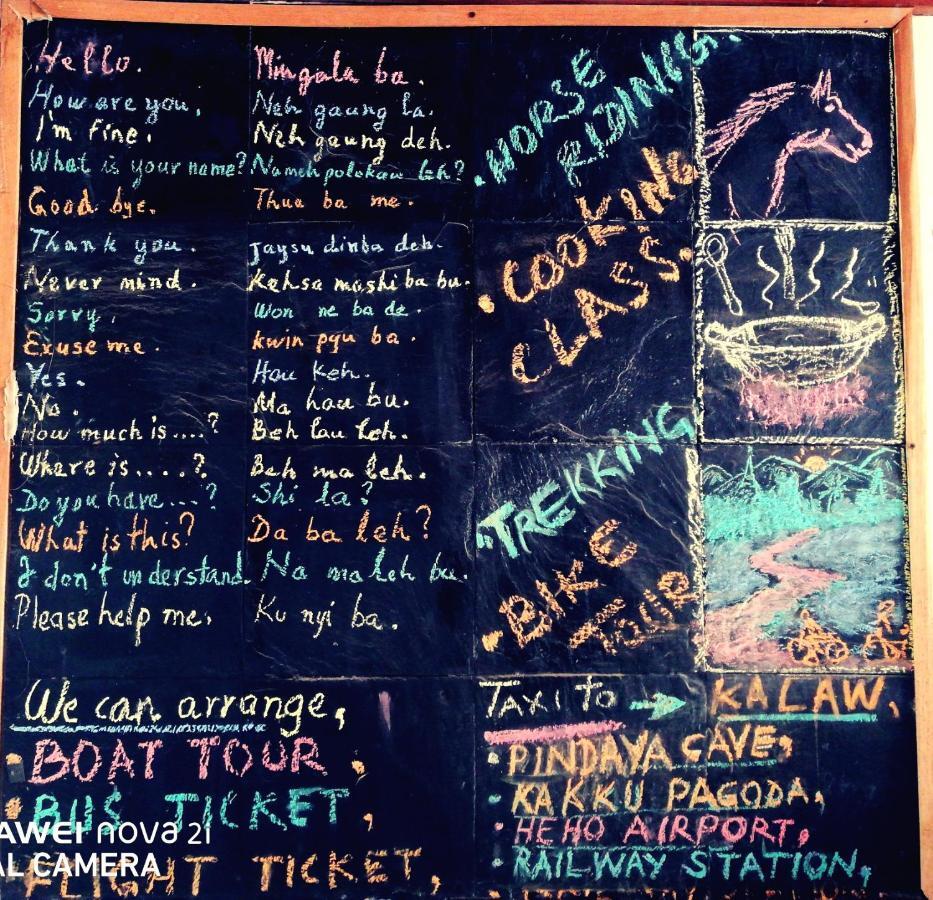 Hello. Mingala ba.
How are you, Neh gaung la.
I'm fine. Neh gaung deh.
What is your name? Nameh polokaw leh?
Good bye. Thua ba me.
Thank you. Jaysu dinba deh.
Never mind. Kehsa mashiba bu.
Sorry, Won ne ba de.
Exuse me. kwin pyu ba.
Yes. Hou keh.
No. Ma hau bu.
How much is....? Beh lau leh.
Where is....? Beh ma leh.
Do you have....? Shi la?
What is this? Da ba leh?
I don't understand. Na ma leh bu.
Please help me. Ku nyi ba.
• HORSE
RIDINGS.
• COOKING
CLASS.
• TREKKING
• BIKE
TOUR
We can arrange,
• BOAT TOUR,
• BUS TICKET,
FLIGHT TICKET,
TAXI to → KALAW.
• PINDAYA CAVE,
• KAKKU PAGODA,
• HEHO AIRPORT,
• RAILWAY STATION,
AWEI nova 2i
AL CAMERA